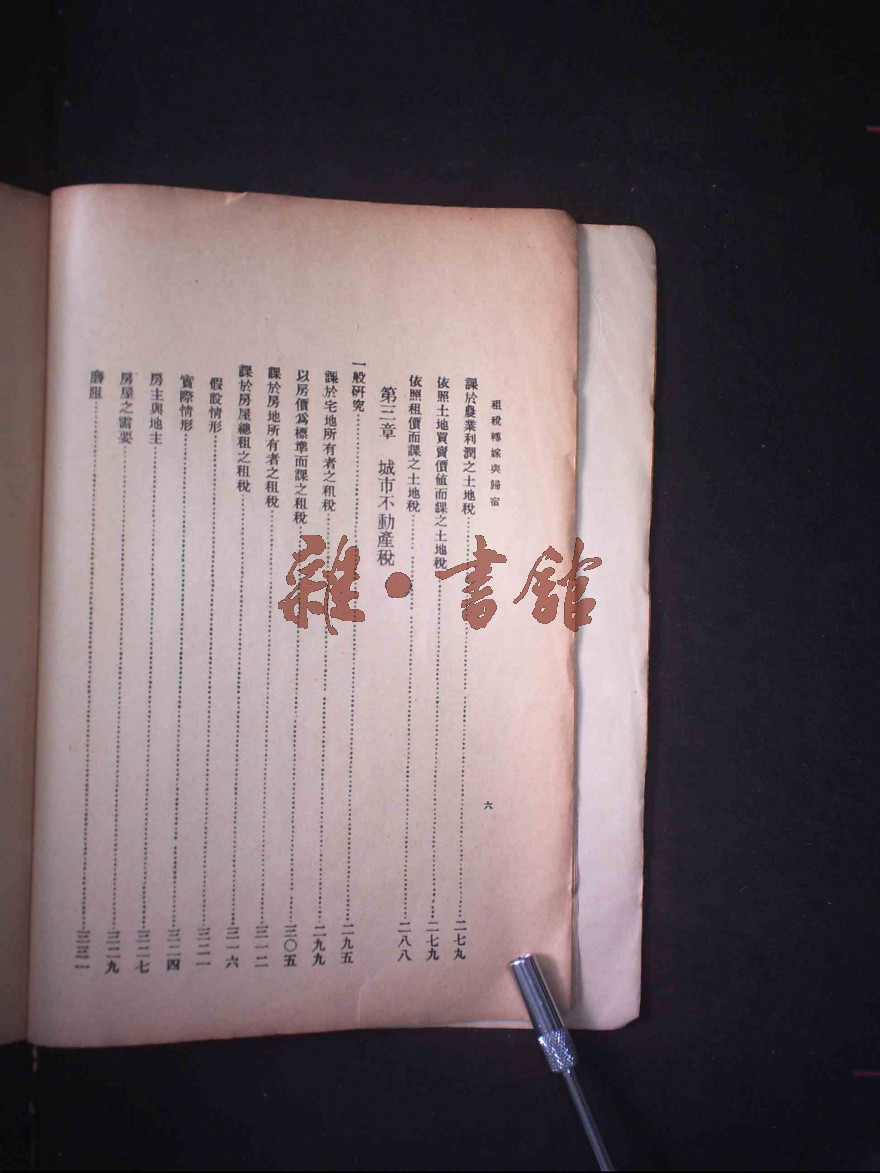 租稅轉嫁與歸宿
六
課於農業利潤之土地稅……二七九
依照土地買賣價値而課之土地稅……二七九
依照租價而課之土地稅……二八八
第三章 城市不動產稅
一般硏究……二九五
課於宅地所有者之租稅……二九九
以房價爲標準而課之租稅……三〇五
課於房地所有者之租稅……三一二
課於房屋總租之租稅……三一六
假設情形……三二一
實際情形……三二四
房主與地主……三二七
房屋之需要……三二九
磨阻……三三一
雜·書館